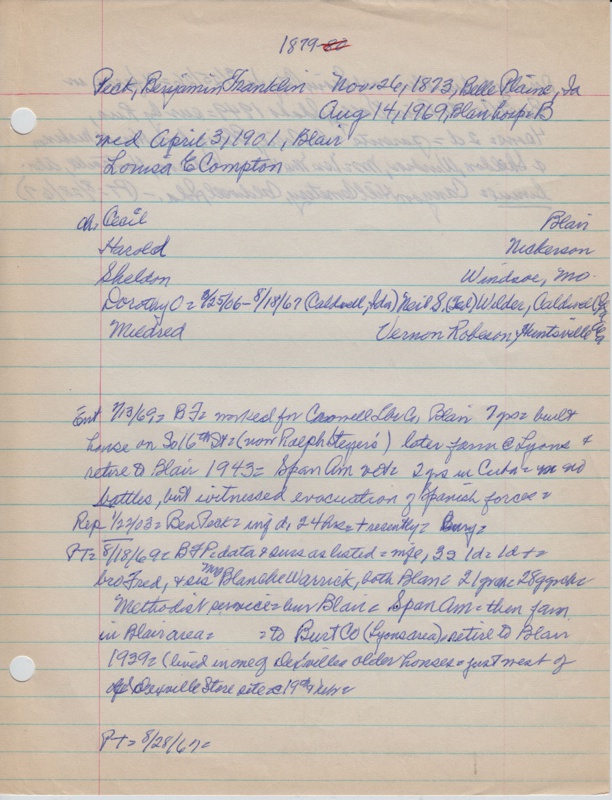 1879-80
Peck, Benjamin Franklin Nov 26, 1873, Belle Plaine, Ia
Aug 14, 1969, Blair hosp = B
med April 3, 1901, Blair
Louisa E Compton
ch. Cecil Blair
Harold Nickerson
Sheldon Windsor, Mo.
Dorothy O = 9/25/06 - 8/18/67 (Caldwell, Ida) Neil S. (Ted) Wilder, Caldwell
Mildred Vernon Robeson, Huntsville
Ent 7/13/69 = B F = worked for Crowell Lbr Co, Blair 7 yrs = built
house on So 16th St = (now Ralph Steyers') later farm @ Lyons &
retire to Blair 1943 = Span Am vet = 2 yrs in Cuba = no
battles, but witnessed evacuation of Spanish forces =
Rep 1/22/03 = Ben Peck = inf d, 24 hrs = + recently =
PT = 8/18/69 = B F P = data & survs as listed = wife, 3s 1d = 1d + =
bro Fred, & sis Mrs Blanche Warrick, both Blair = 21 grch = 28 ggrch =
Methodist service = bur Blair = Span Am = then farm
in Blair area = = to Burt Co (Lyons area), retire to Blair
1939 = (lived in one of Dexville's older houses = just west of
old Dexville Store site =
PT = 8/28/67 =